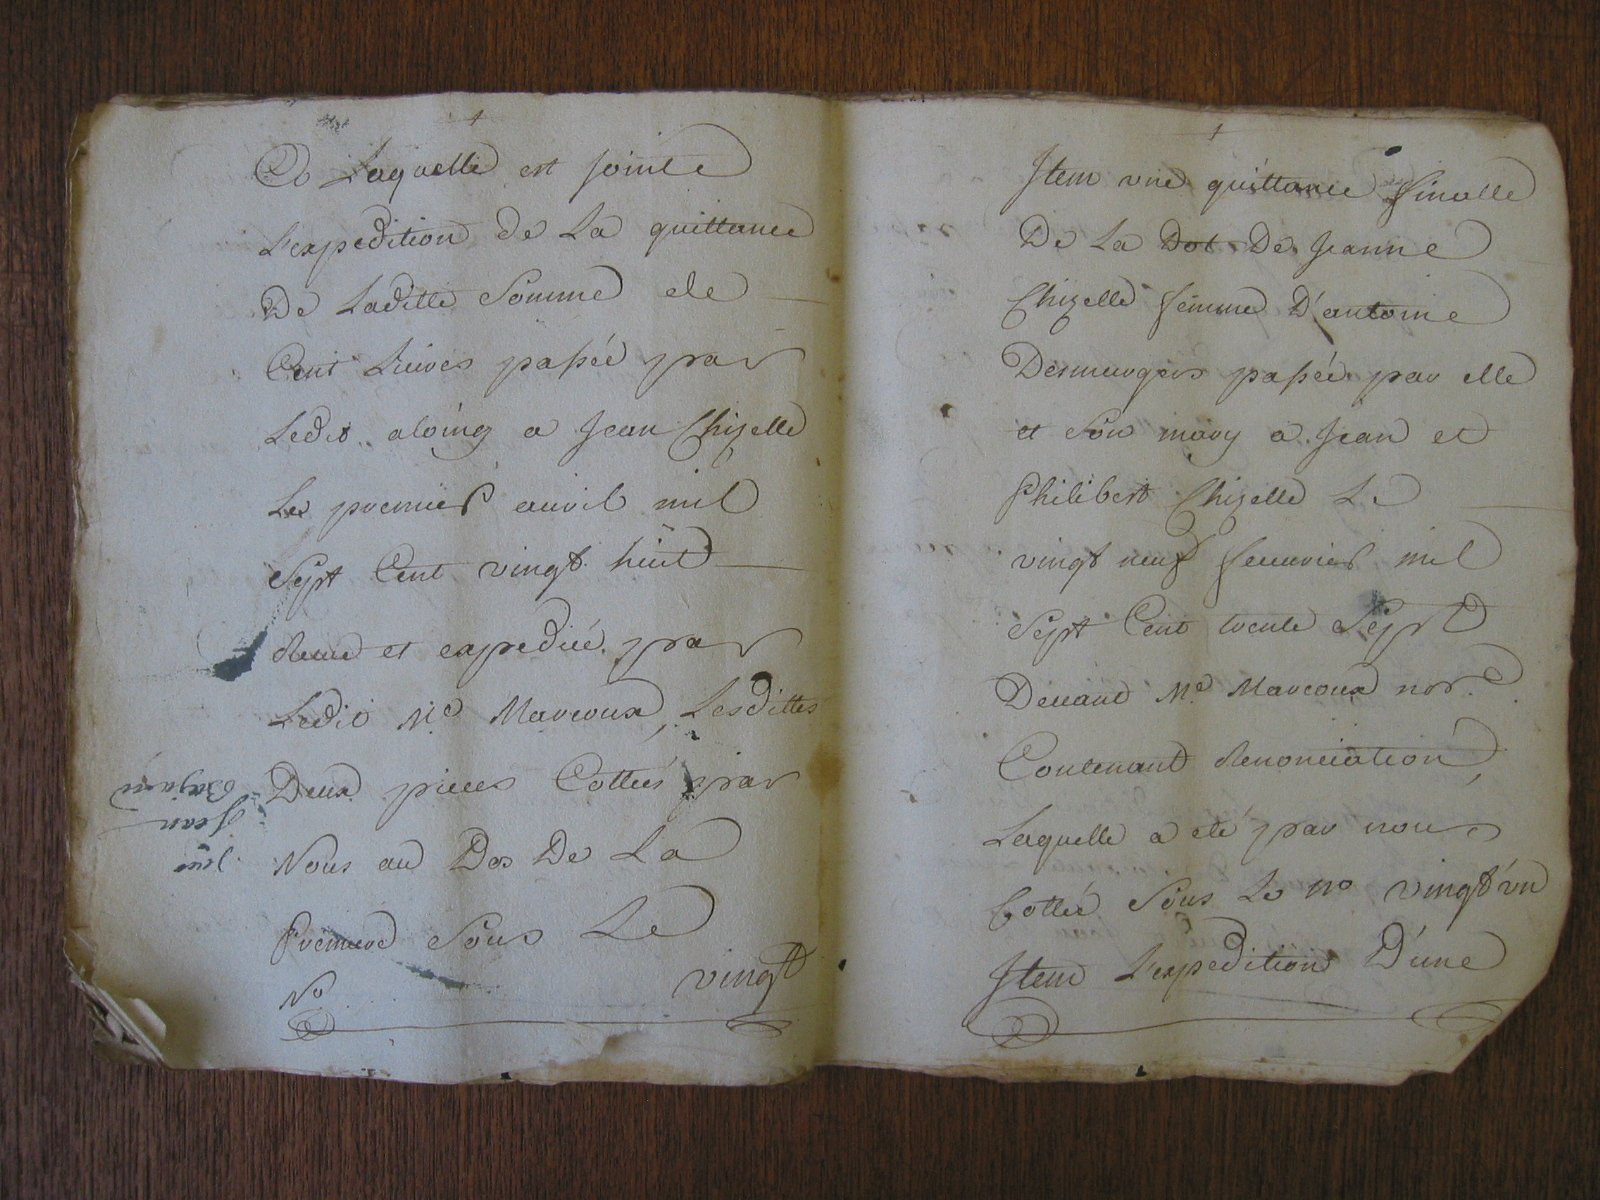 a Laquelle est jointe
L'expedition de La quittance
De Laditte Somme de
Cent Livres passée par
Ledit aloing a Jean Chizelle
Le premier avril mil
Sept Cent vingt huit
Reçue et expediée par
Ledit Me Marcoux, Lesdittes
Deux pieces Cottées par
Nous au Dos De La
Premiere Sous Le
No vingt
Jean
Item une quittance finalle
De La Dot De Jeanne
Chizelle femme D'antoine
Desmurgers passée par elle
et Son mary a Jean et
Philibert Chizelle Le
vingt neuf feuurier mil
Sept Cent trente Sept
Deuant Me Marcoux nore
Contenant Renonciation,
Laquelle a eté par nous
Cottée Sous Le no vingt'un
Item L'expedition D'une